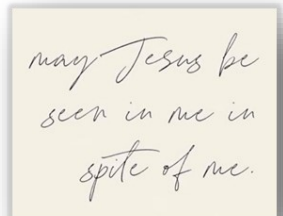 may Jesus be
seen in me in
spite of me.